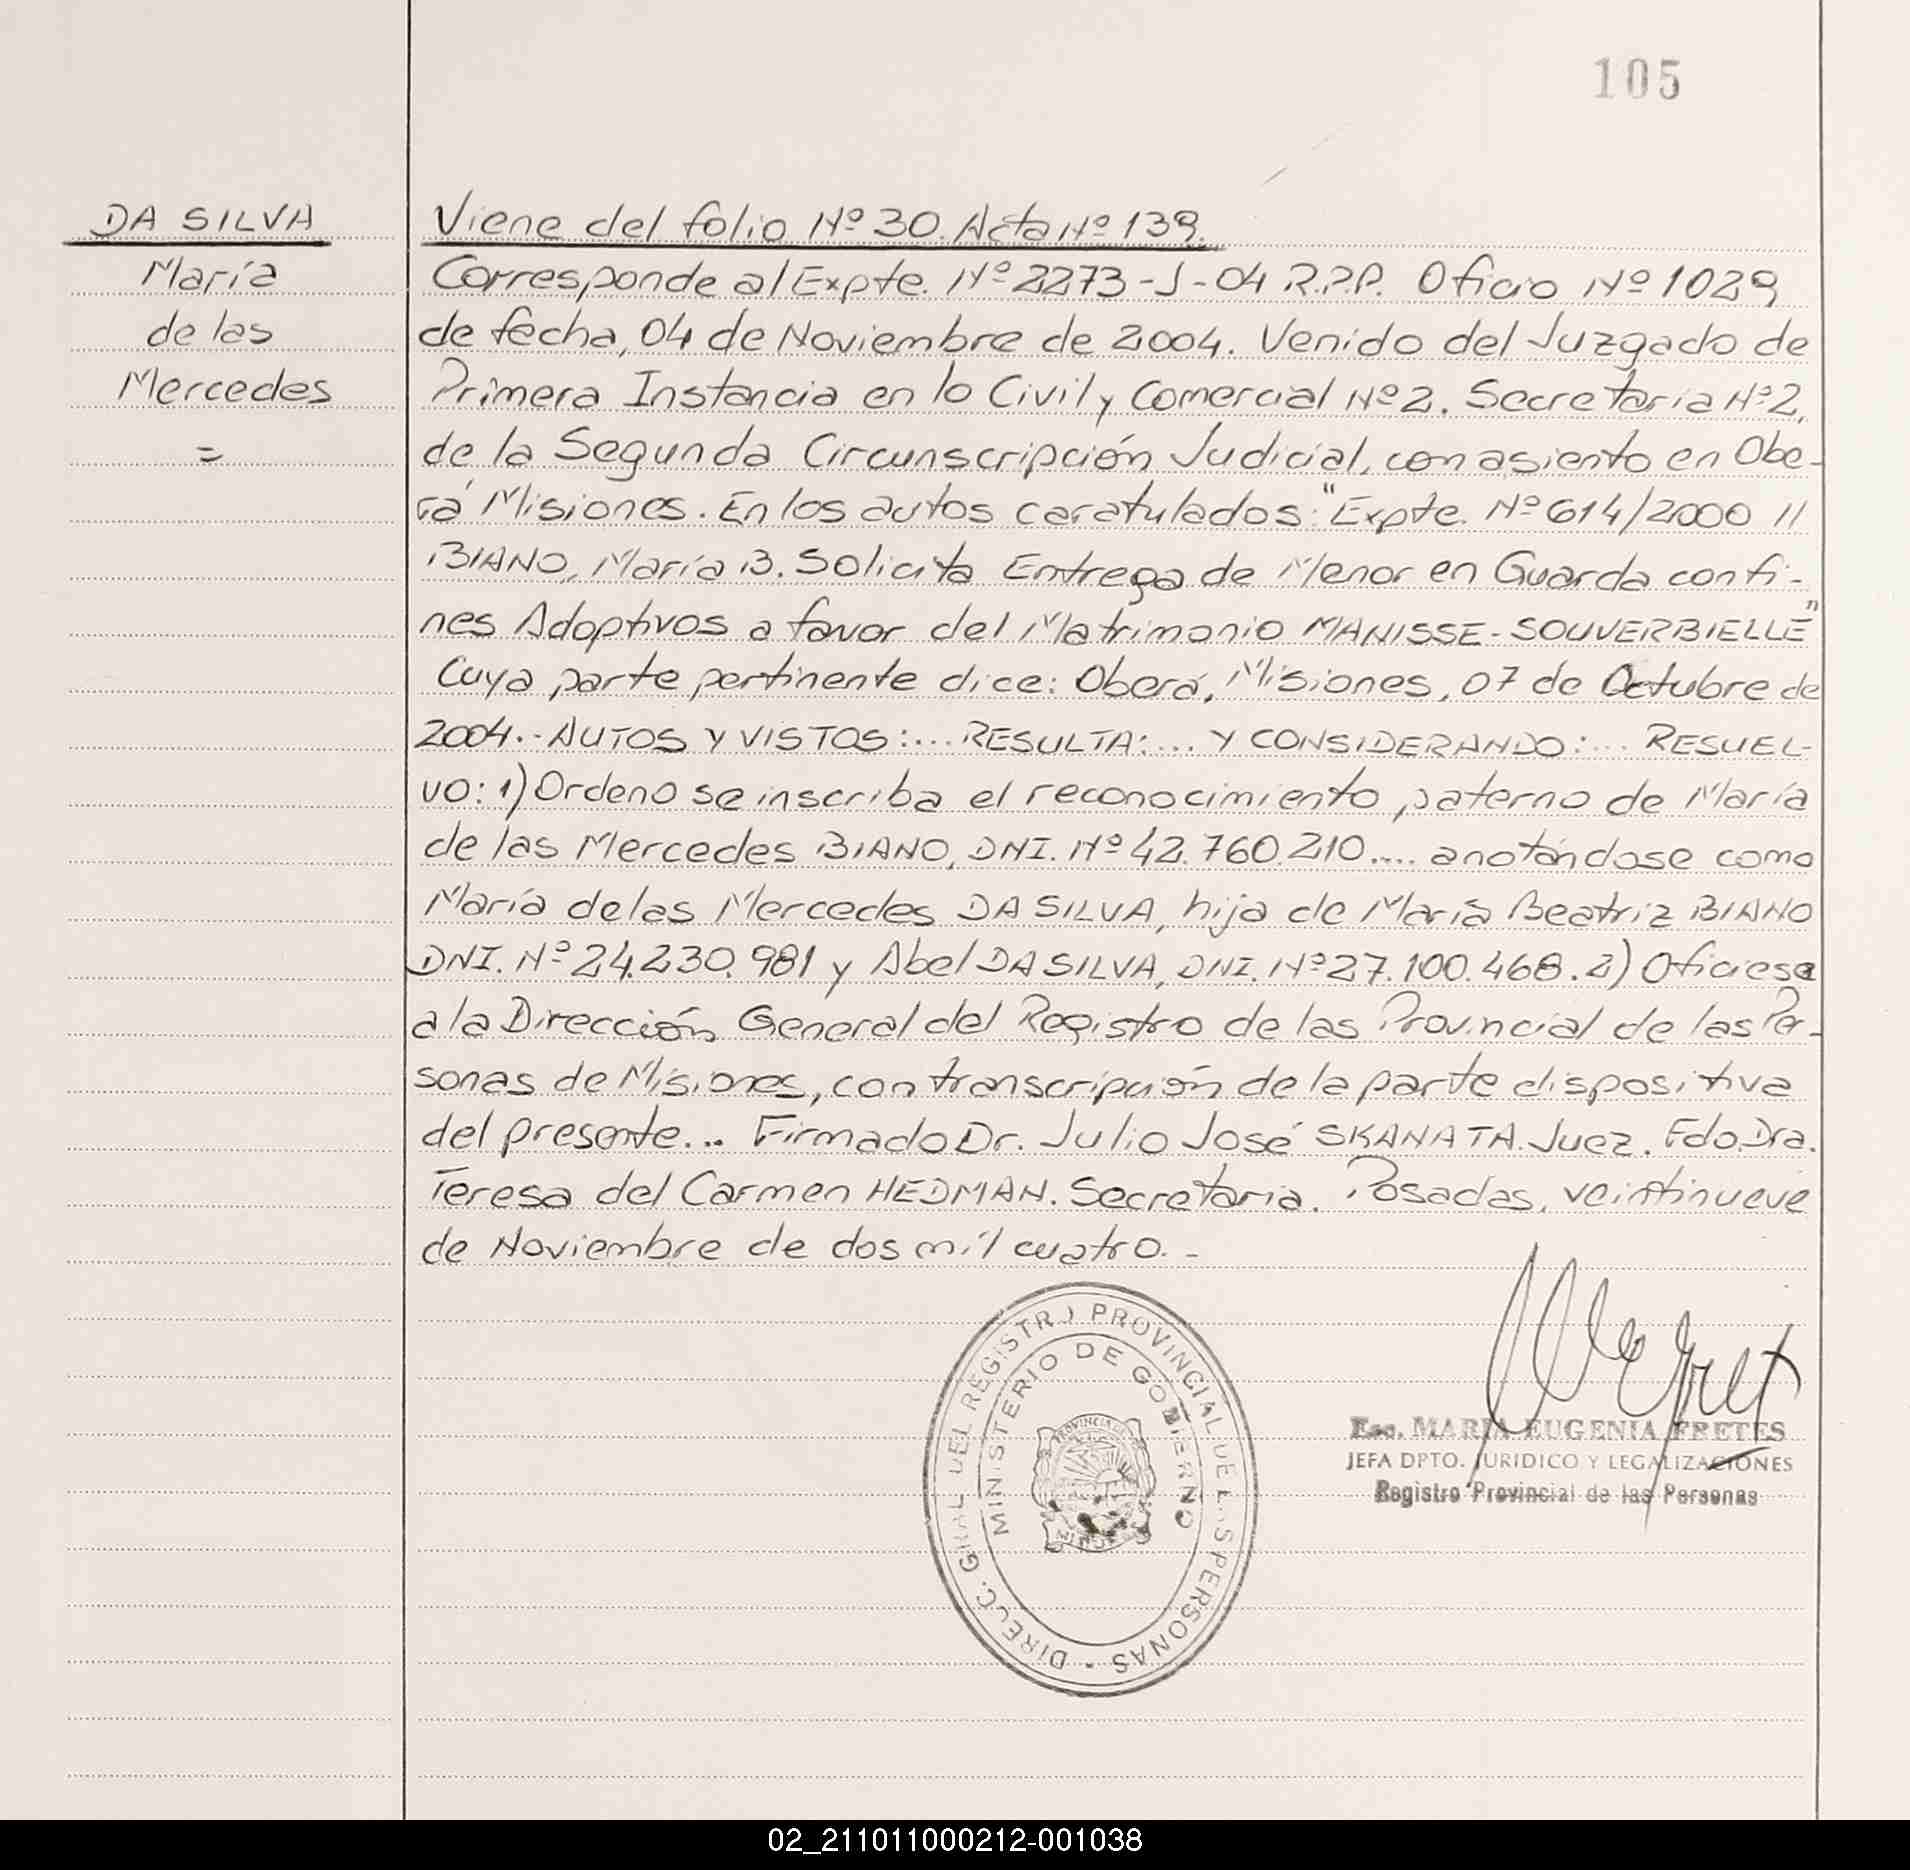 105
DA SILVA
María
de las
Mercedes
=
Viene del folio Nº 30. Acta Nº 139.
Corresponde al Expte. Nº 2273-J-04 R.P.P. Oficio Nº 1029
de fecha, 04 de Noviembre de 2004. Venido del Juzgado de
Primera Instancia en lo Civil y Comercial Nº 2. Secretaría Nº 2,
de la Segunda Circunscripción Judicial, con asiento en Obe-
rá Misiones. En los autos caratulados: "Expte. Nº 614/2000 //
BIANO, María B. Solicita Entrega de Menor en Guarda con fi-
nes Adoptivos a favor del Matrimonio MANISSE-SOUVERBIELLE"
Cuya parte pertinente dice: Oberá, Misiones, 07 de Octubre de
2004.- AUTOS Y VISTOS:... RESULTA:... Y CONSIDERANDO:... RESUEL-
VO: 1) Ordeno se inscriba el reconocimiento paterno de María
de las Mercedes BIANO, DNI. Nº 42.760.210..... anotándose como
María de las Mercedes DA SILVA, hija de María Beatriz BIANO
DNI. Nº 24.230.981 y Abel DA SILVA, DNI. Nº 27.100.468. 2) Oficiese
a la Dirección General del Registro de las Provincial de las Per-
sonas de Misiones, con transcripción de la parte dispositiva
del presente... Firmado Dr. Julio José SKANATA. Juez. Fdo. Dra.
Teresa del Carmen HEDMAN. Secretaria. Posadas, veintinueve
de Noviembre de dos mil cuatro.-
DIRECC. GRAL DEL REGISTRO PROVINCIAL DE LAS PERSONAS -
MINISTERIO DE GOBIERNO
PROVINCIA DE
MISIONES
Esc. MARIA EUGENIA FRETES
JEFA DPTO. JURIDICO Y LEGALIZACIONES
Registro Provincial de las Personas
02_211011000212-001038